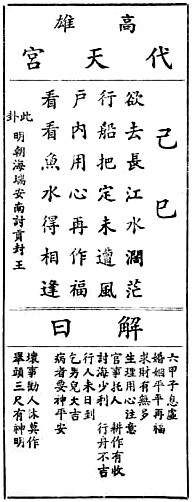 高雄
代天宮
己巳
欲去長江水濶茫
行船把定未遭風
戶內用心再作福
看看魚水得相逢
此卦 明朝海瑞安南討貢封王
解曰
六甲子息虛
婚姻平平再福
求財有無多
生理用心注意
官事托人 耕作有收
討海少利 行舟不吉
行人未日到
乞男兒大吉
病者要神平安
壞事勸人休莫作
舉頭三尺有神明